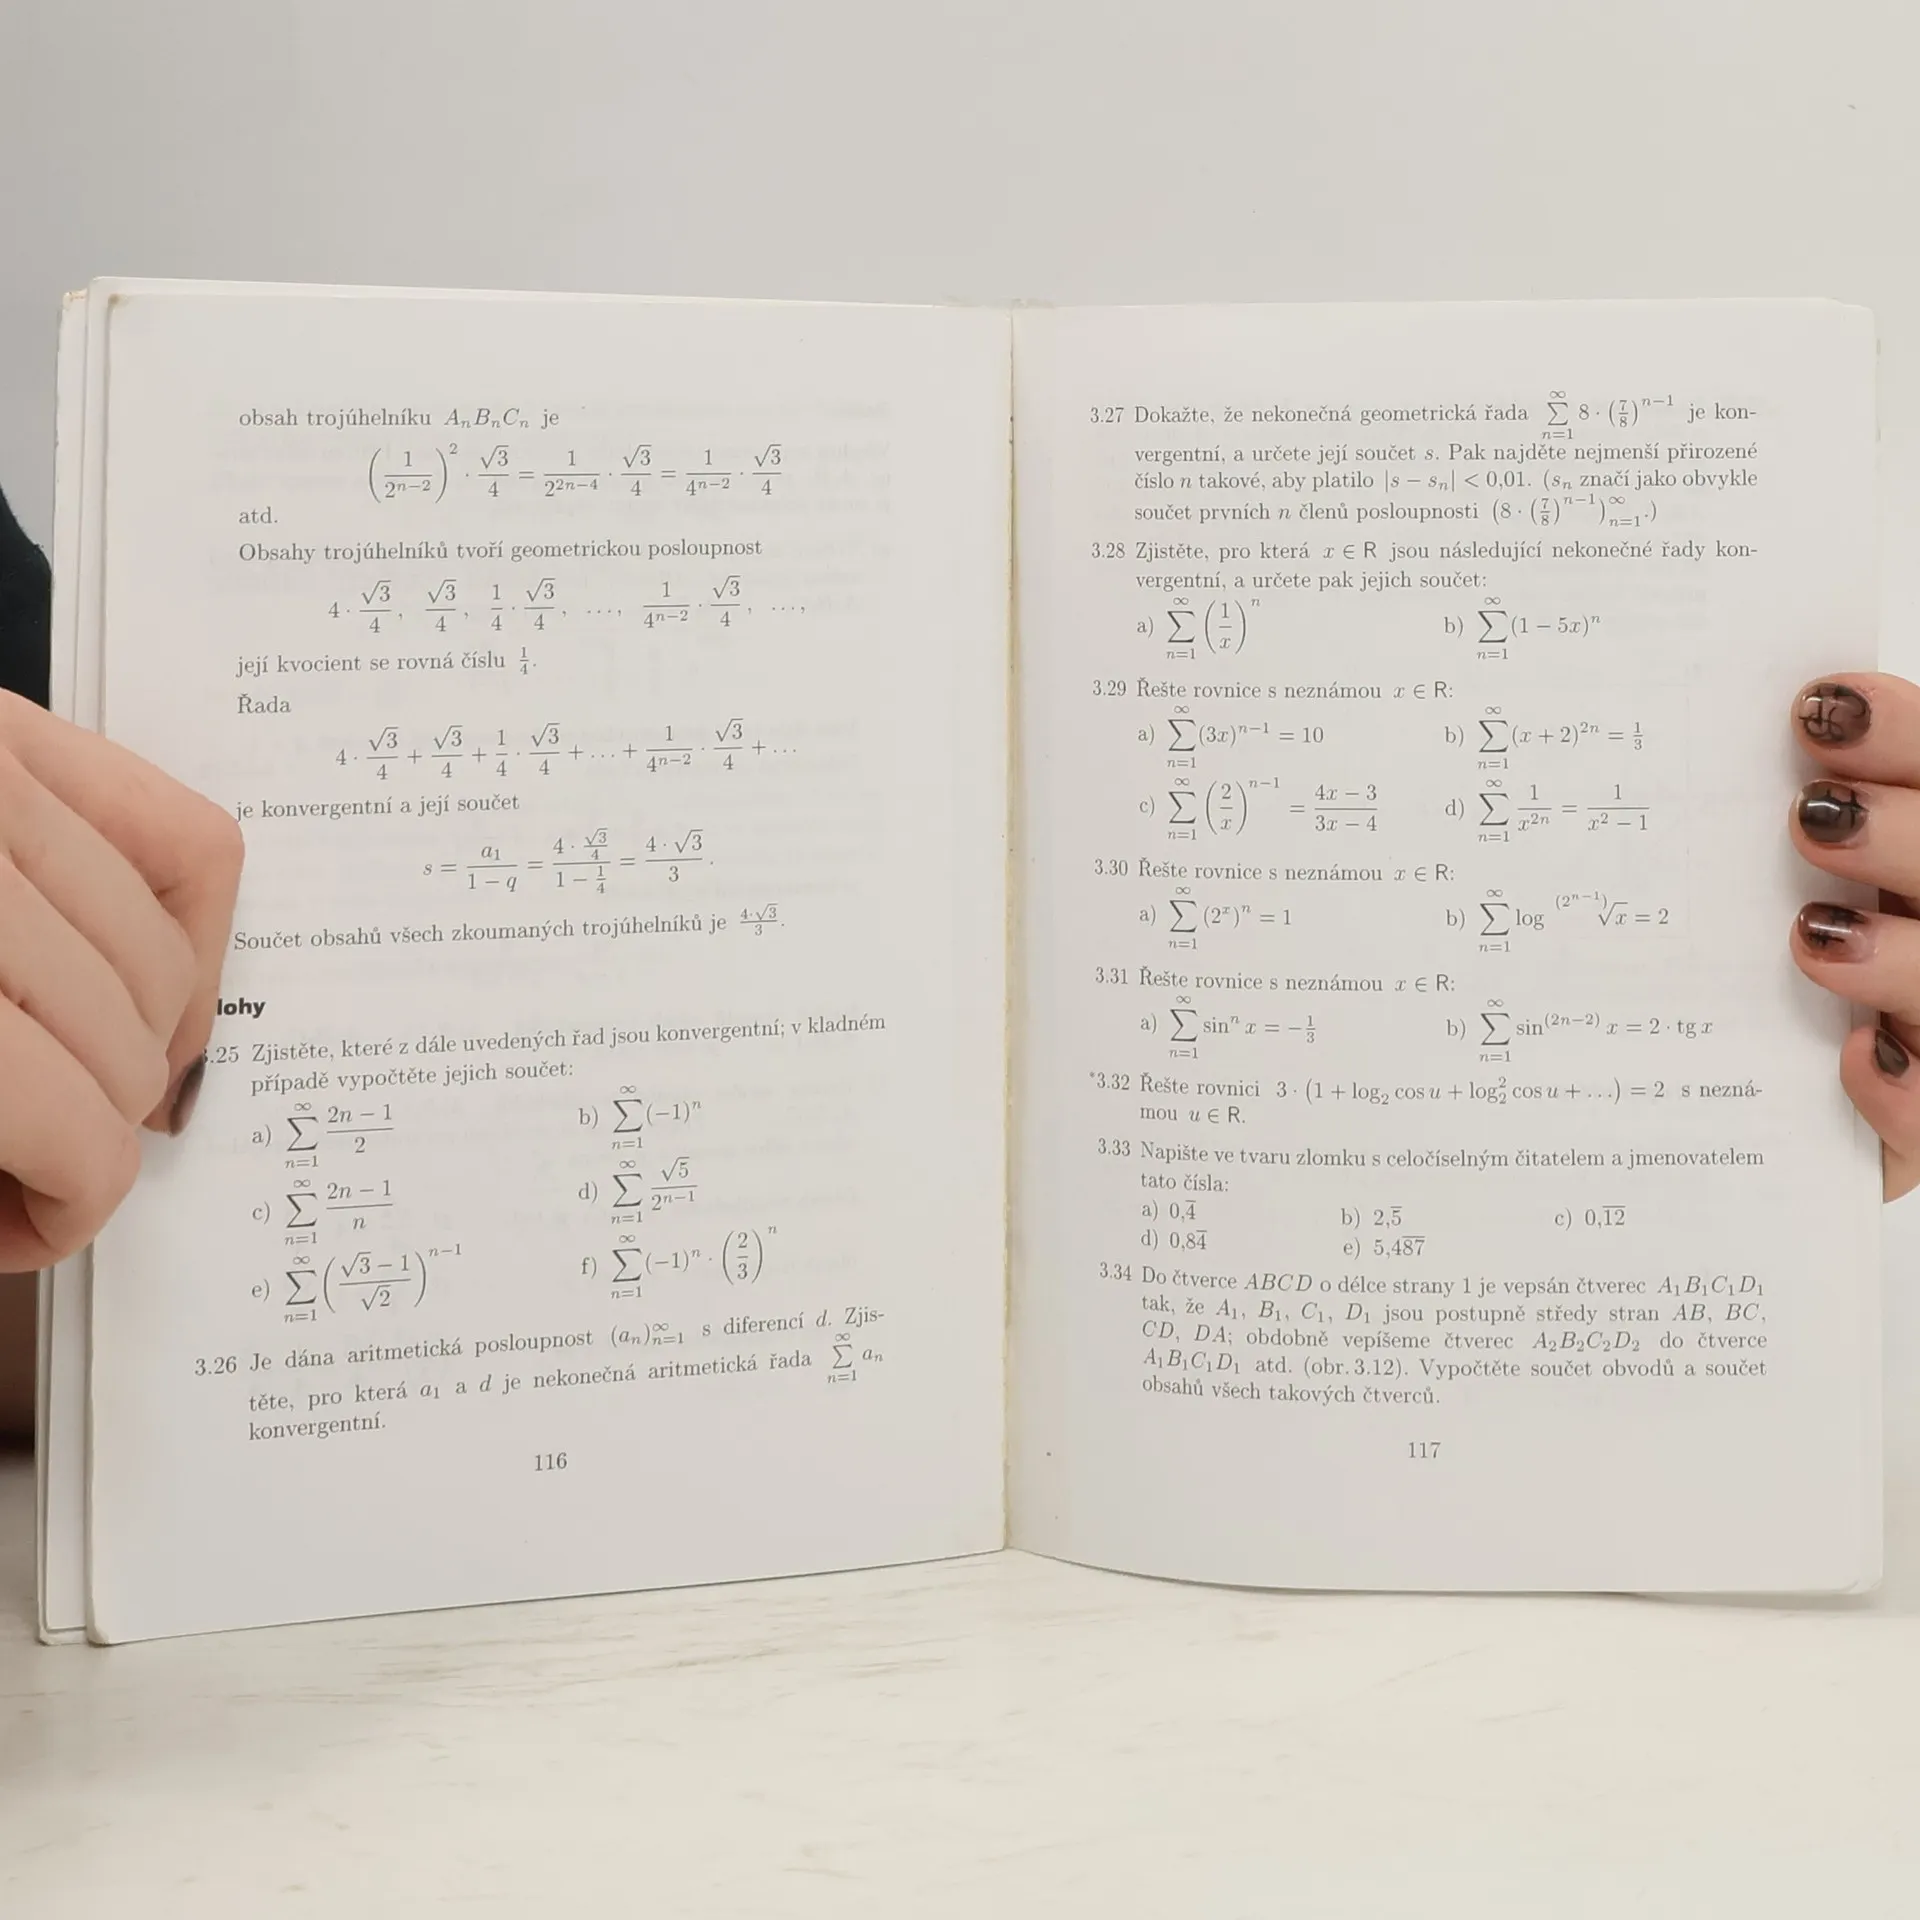 obsah trojúhelníku AₙBₙCₙ je
(1/2ⁿ⁻²)² · √3/4 = 1/2²ⁿ⁻⁴ · √3/4 = 1/4ⁿ⁻² · √3/4
atd.
Obsahy trojúhelníků tvoří geometrickou posloupnost
4 · √3/4, √3/4, 1/4 · √3/4, ..., 1/4ⁿ⁻² · √3/4, ...,
její kvocient se rovná číslu 1/4.
Řada
4 · √3/4 + √3/4 + 1/4 · √3/4 + ... + 1/4ⁿ⁻² · √3/4 + ...
je konvergentní a její součet
s = a₁/(1 − q) = (4 · √3/4)/(1 − 1/4) = (4 · √3)/3.
Součet obsahů všech zkoumaných trojúhelníků je (4·√3)/3.
lohy
.25 Zjistěte, které z dále uvedených řad jsou konvergentní; v kladném
případě vypočtěte jejich součet:
a) ∑_{n=1}^{∞} (2n − 1)/2 b) ∑_{n=1}^{∞} (−1)ⁿ
c) ∑_{n=1}^{∞} (2n − 1)/n d) ∑_{n=1}^{∞} √5/2ⁿ⁻¹
e) ∑_{n=1}^{∞} ((√3 − 1)/√2)ⁿ⁻¹ f) ∑_{n=1}^{∞} (−1)ⁿ · (2/3)ⁿ
3.26 Je dána aritmetická posloupnost (aₙ)_{n=1}^{∞} s diferencí d. Zjis-
těte, pro která a₁ a d je nekonečná aritmetická řada ∑_{n=1}^{∞} aₙ
konvergentní.
116
3.27 Dokažte, že nekonečná geometrická řada ∑_{n=1}^{∞} 8 · (7/8)ⁿ⁻¹ je kon-
vergentní, a určete její součet s. Pak najděte nejmenší přirozené
číslo n takové, aby platilo |s − sₙ| < 0,01. (sₙ značí jako obvykle
součet prvních n členů posloupnosti (8 · (7/8)ⁿ⁻¹)_{n=1}^{∞}.)
3.28 Zjistěte, pro která x ∈ R jsou následující nekonečné řady kon-
vergentní, a určete pak jejich součet:
a) ∑_{n=1}^{∞} (1/x)ⁿ b) ∑_{n=1}^{∞} (1 − 5x)ⁿ
3.29 Řešte rovnice s neznámou x ∈ R:
a) ∑_{n=1}^{∞} (3x)ⁿ⁻¹ = 10 b) ∑_{n=1}^{∞} (x + 2)²ⁿ = 1/3
c) ∑_{n=1}^{∞} (2/x)ⁿ⁻¹ = (4x − 3)/(3x − 4) d) ∑_{n=1}^{∞} 1/x²ⁿ = 1/(x² − 1)
3.30 Řešte rovnice s neznámou x ∈ R:
a) ∑_{n=1}^{∞} (2ˣ)ⁿ = 1 b) ∑_{n=1}^{∞} log ⁽²ⁿ⁻¹⁾√x = 2
3.31 Řešte rovnice s neznámou x ∈ R:
a) ∑_{n=1}^{∞} sinⁿ x = −1/3 b) ∑_{n=1}^{∞} sin⁽²ⁿ⁻²⁾ x = 2 · tg x
*3.32 Řešte rovnici 3 · (1 + log₂ cos u + log₂² cos u + ...) = 2 s nezná-
mou u ∈ R.
3.33 Napište ve tvaru zlomku s celočíselným čitatelem a jmenovatelem
tato čísla:
a) 0,4̅ b) 2,5̅ c) 0,1̅2̅
d) 0,84̅ e) 5,48̅7̅
3.34 Do čtverce ABCD o délce strany 1 je vepsán čtverec A₁B₁C₁D₁
tak, že A₁, B₁, C₁, D₁ jsou postupně středy stran AB, BC,
CD, DA; obdobně vepíšeme čtverec A₂B₂C₂D₂ do čtverce
A₁B₁C₁D₁ atd. (obr. 3.12). Vypočtěte součet obvodů a součet
obsahů všech takových čtverců.
117